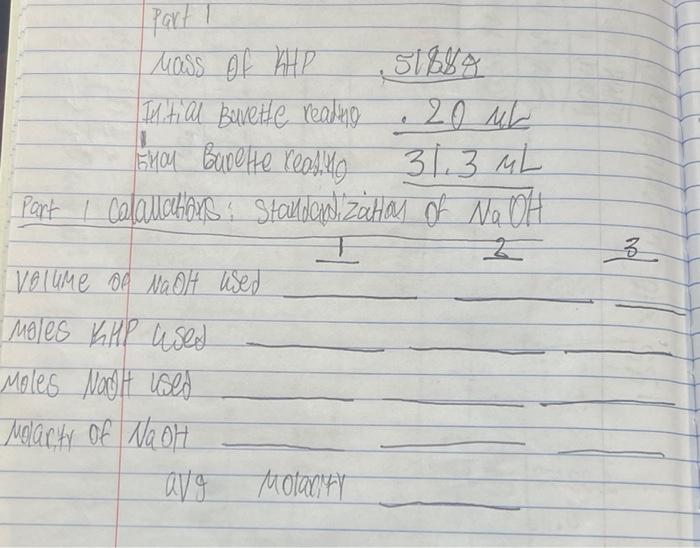 Part 1
Mass of KHP .5188g
Initial Burette reading .20 mL
Final Burette reading 31.3 mL
Part 1 Calculations: Standardization of NaOH
1 2 3
Volume of NaOH used
Moles KHP used
Moles NaOH used
Molarity of NaOH
avg Molarity